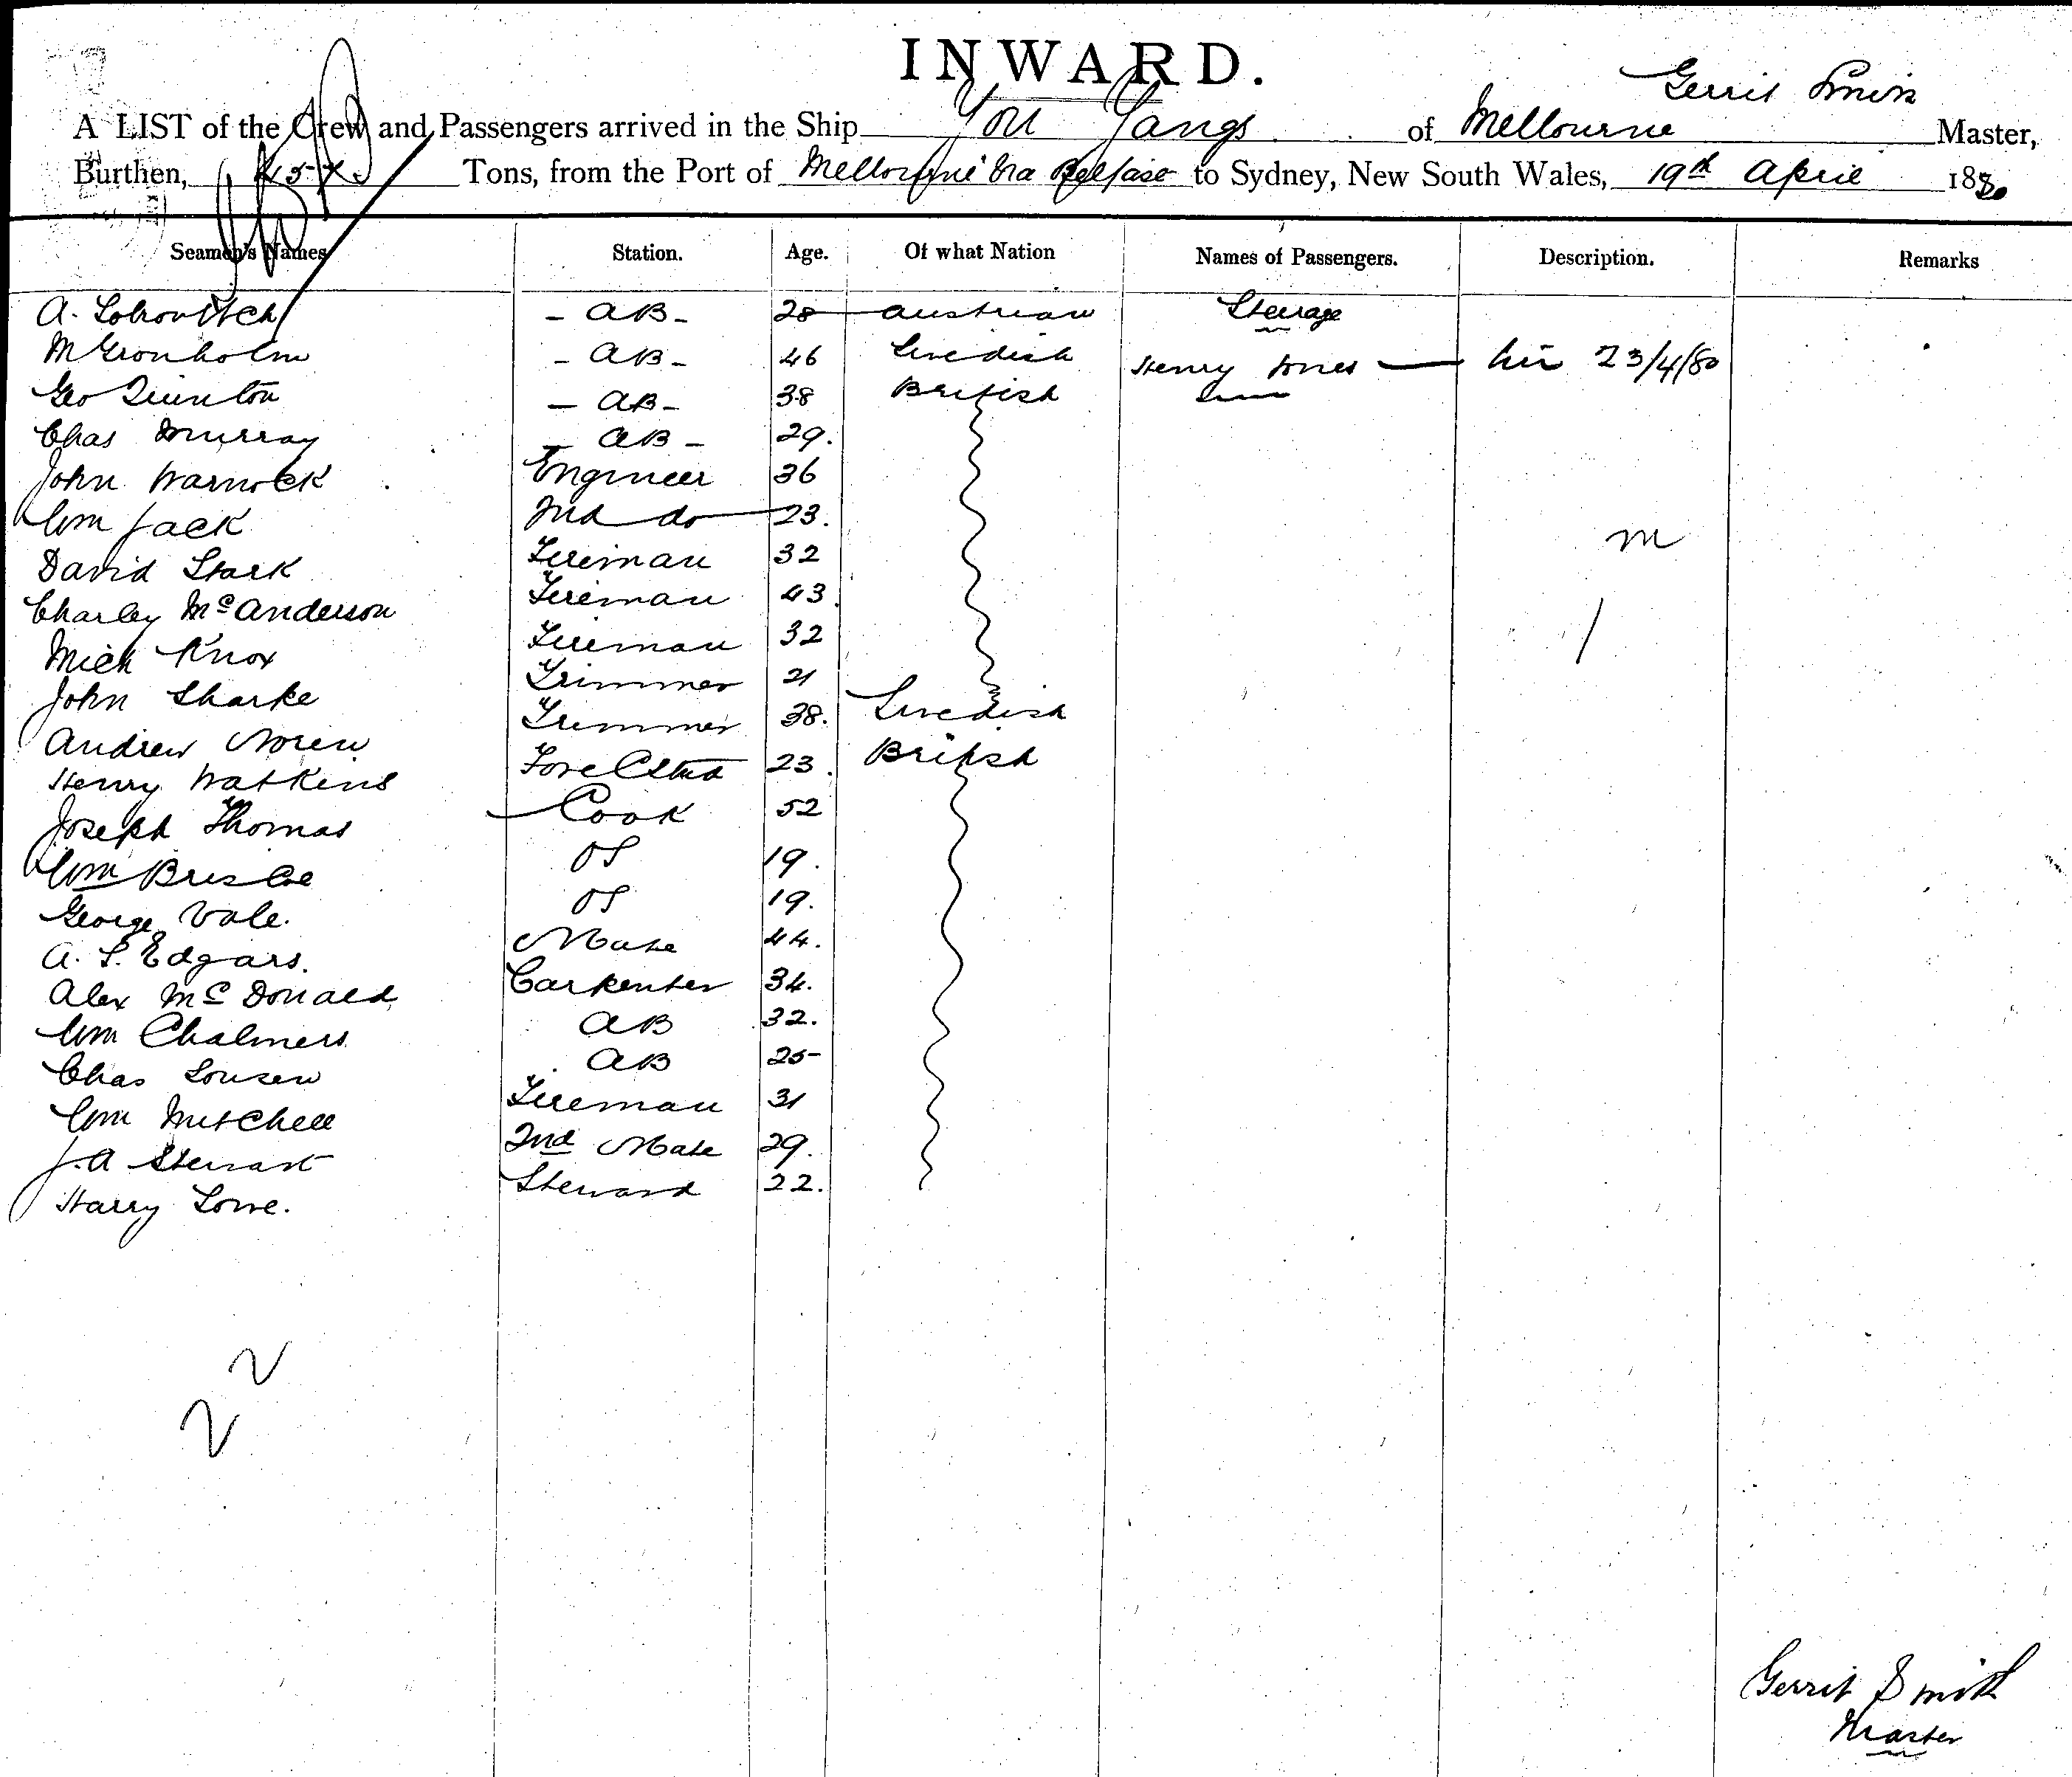 INWARD.
Gerrit Smith
A LIST of the Crew and Passengers arrived in the Ship You Yangs of Melbourne Master,
Burthen, Tons, from the Port of Melbourne via Belfast to Sydney, New South Wales, 19th April 1880
Seamen's Names Station. Age. Of what Nation Names of Passengers. Description. Remarks
A. Lobovitch - AB - 28 Austrian Steerage
M Gronholm - AB - 46 Swedish Henry Jones 23/4/80
Geo Quinton - AB - 38 British
Chas Murray - AB - 29.
John Warnock Engineer 36
Wm Jack 2nd do 23.
David Stark Fireman 32
Charley McAnderson Fireman 43
Mich Knox Fireman 32
John Sharke Trimmer 21
Andrew Noren Trimmer 38. Swedish
Henry Watkins Fore C Std 23. British
Joseph Thomas Cook 52
Wm Briscoe OS 19.
George Vale. OS 19.
A. S. Edgars. Mate 44.
Alex McDonald Carpenter 34.
Wm Chalmers AB 32.
Chas Lousen AB 25
Wm Mitchell Fireman 31
J. A Stewart 2nd Mate 29.
Harry Lowe. Steward 22.
m
/
Gerrit Smith
Master